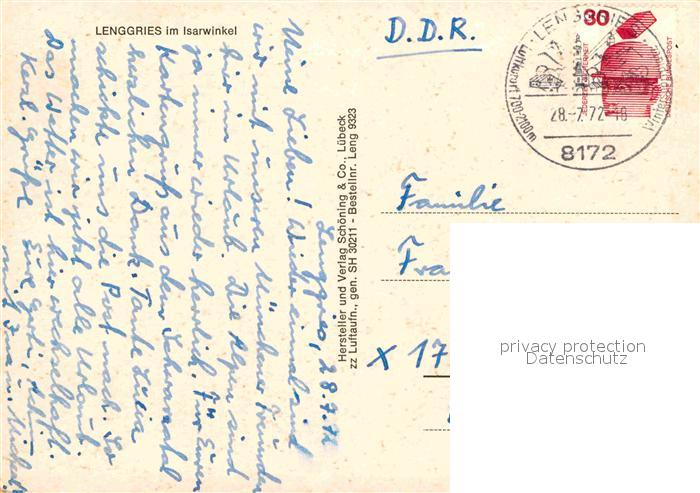 LENGGRIES im Isarwinkel
Lenggries, 28.7.72
Meine Lieben! Wieder einmal sind
wir mit unseren Münchener Freunden
hier in Urlaub. Die Alpen sind
ja immer wieder herrlich. Für Euren
Kartengruß aus dem Schwarzatal
herzlichen Dank. Tante Luia
schickte uns die Post nach. So
machen wir jetzt alle Urlaub
Das Wetter ist hier wechselhaft.
Herzl. Grüße
Eure
mit u. Michael
Hersteller und Verlag Schöning & Co., Lübeck
zz Luftaufn., gen. SH 30211 - Bestellnr. Leng 9323
D.D.R.
30
DEUTSCHE BUNDESPOST
LENGGRIES
Luftkurort 700-2100m
28.-7.72-18
8172
Familie
Fra
X 17
privacy protection
Datenschutz